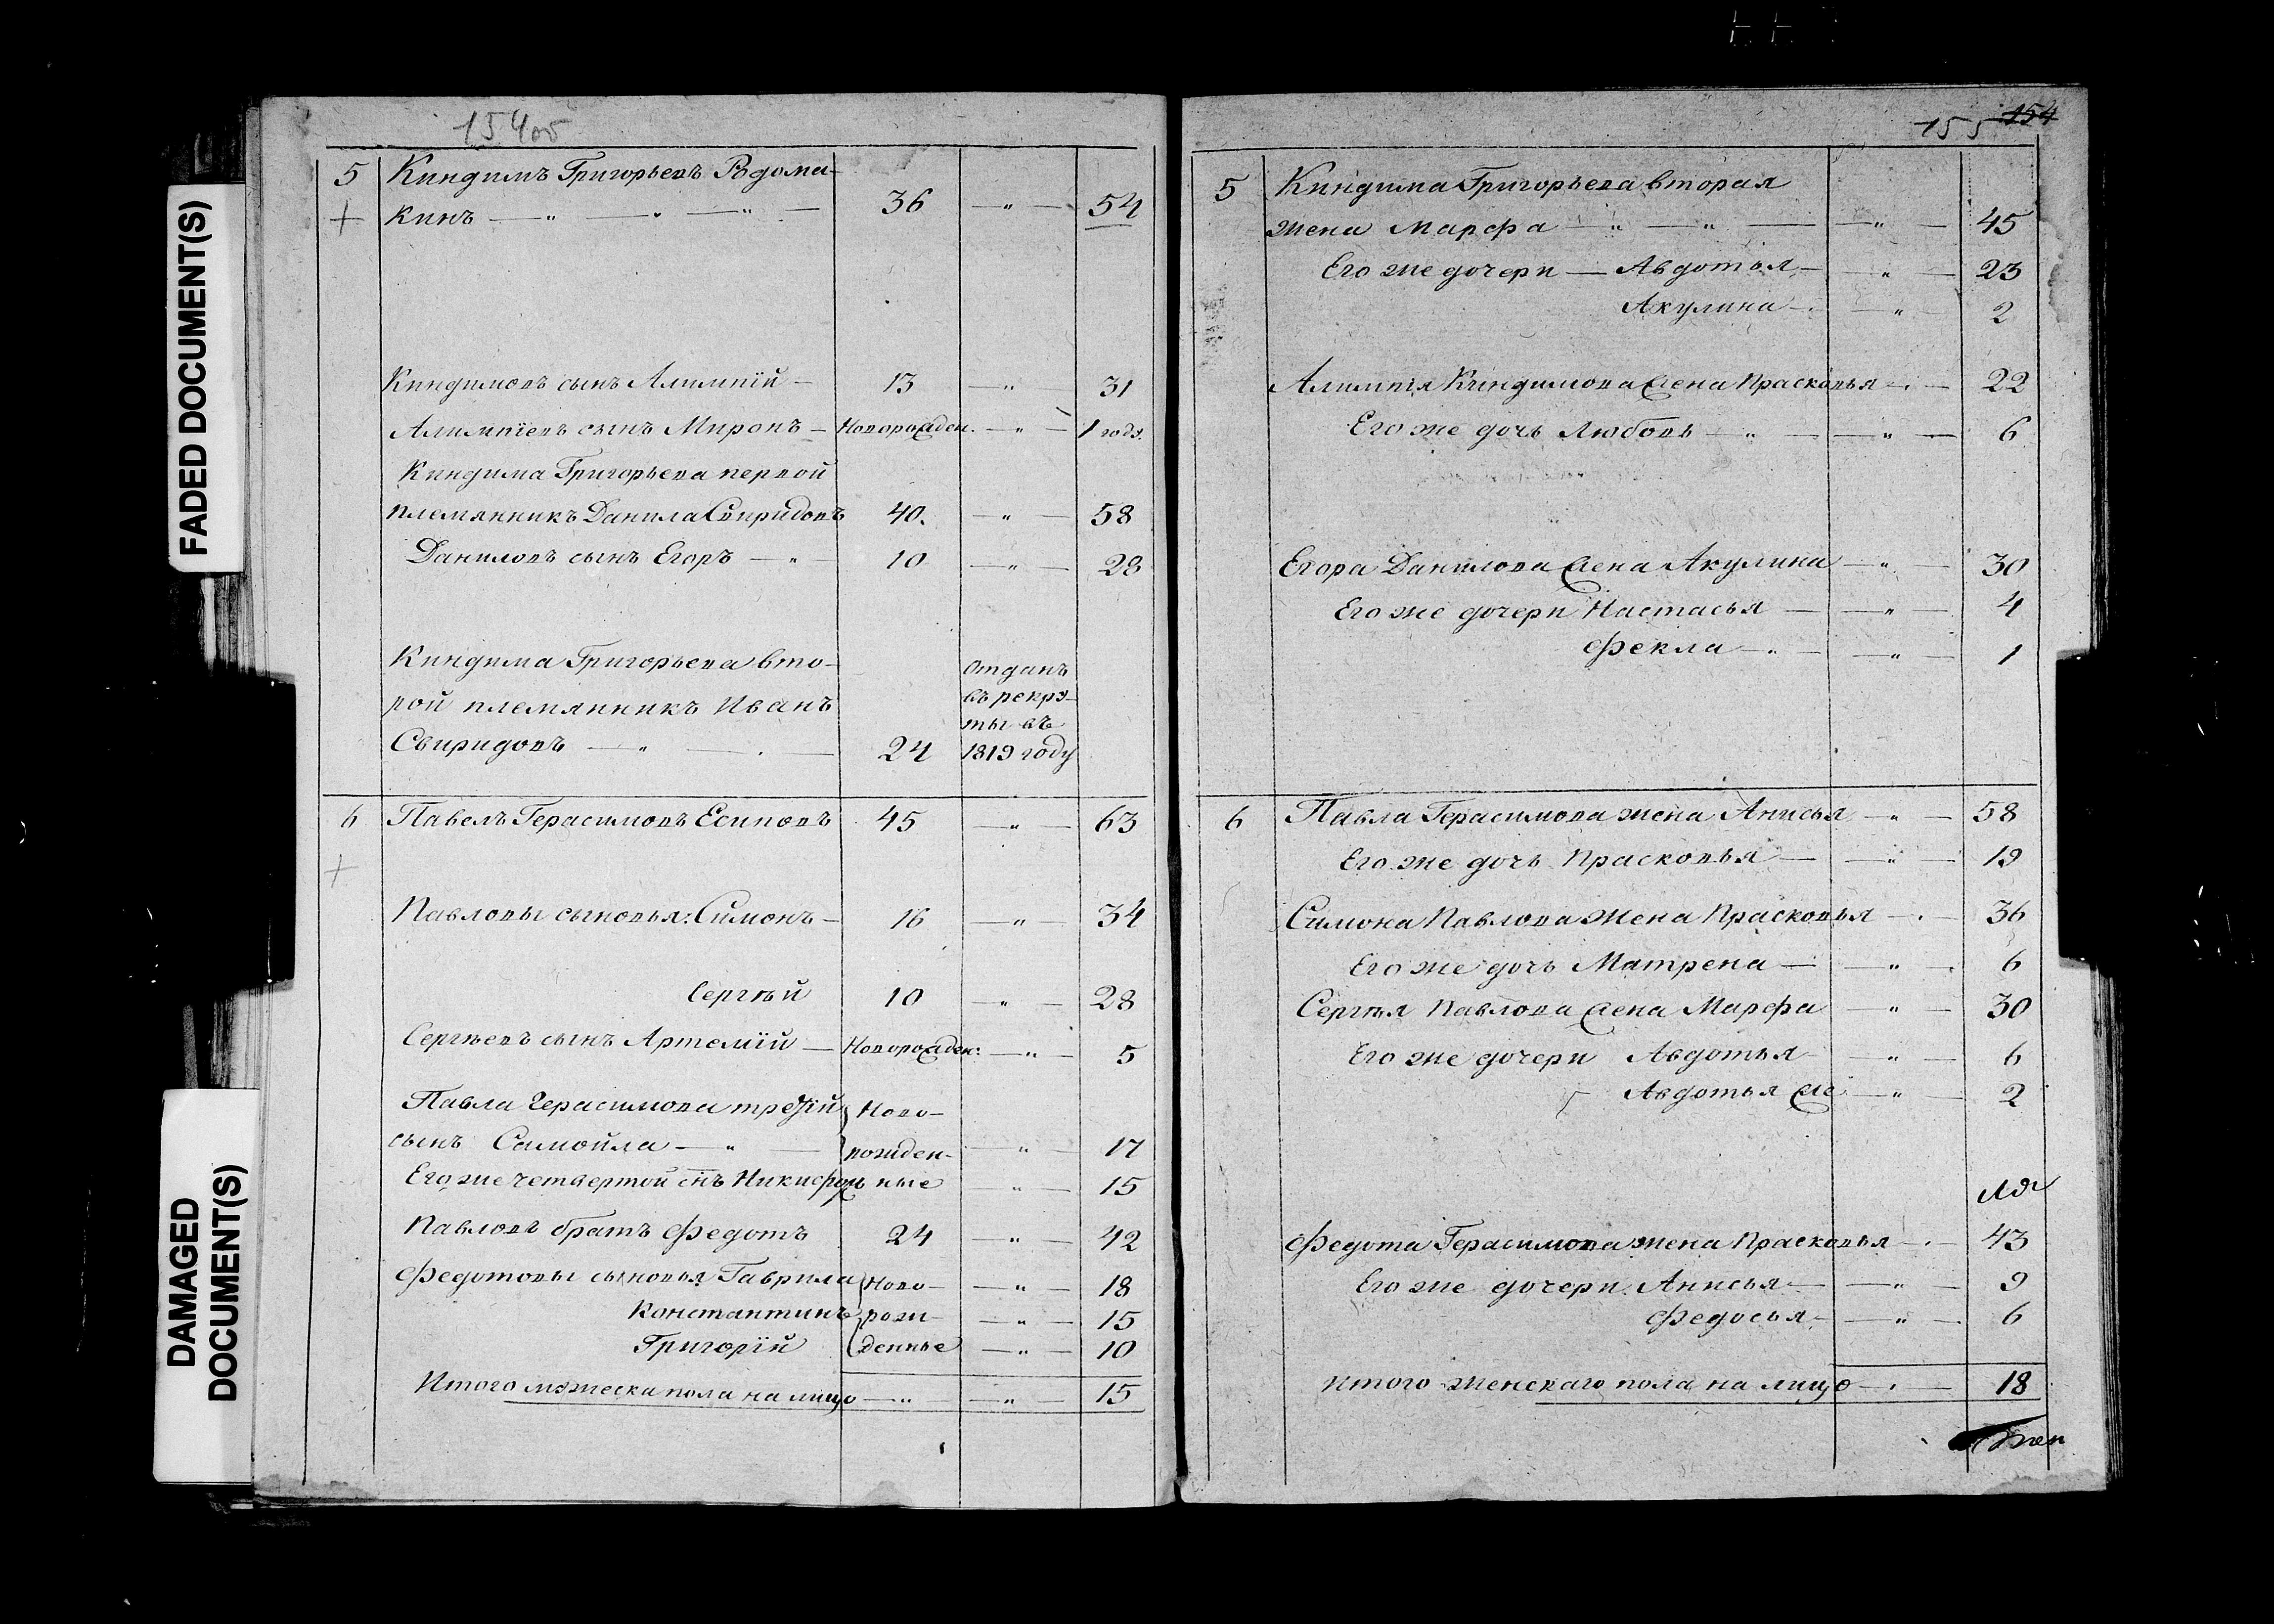 FADED DOCUMENT(S)
DAMAGED
DOCUMENT(S)
154об
5 Киндимъ Григорьевъ Родома-
кинъ — " — " — " — 36 — " — 54
Киндимовъ сынъ Алимпій — 13 — " — 31
Алимпіевъ сынъ Миронъ — Новорожден. — " — 1 году.
Киндима Григорьева первой
племянникъ Данила Свиридовъ 40. — " — 58
Даниловъ сынъ Егоръ — " — 10 — " — 28
Киндима Григорьева вто-
рой племянникъ Иванъ
Свиридовъ — " — . — 24
Отданъ
въ рекру-
ты въ
1819 году
6 Павелъ Герасимовъ Есиповъ 45 — " — 63
Павловы сыновья: Симонъ — 16 — " — 34
Сергѣй 10 — " — 28
Сергѣевъ сынъ Артемій — Новорожден: — " — 5
Павла Герасимова третій Ново-
сынъ Самойла — " — рожден- — " — 17
Его же четвертой снъ Никифоръ ные — " — 15
Павловъ братъ Федотъ 24 — " — 42
Федотовы сыновья Гаврила Ново- — " — 18
Константинъ рож- — " — 15
Григорій денные — " — 10
Итого мужеска пола на лицо — " — — " — 15
155 154
5 Киндима Григорьева вторая
жена Марфа — " — " — — " — 45
Его же дочери — Авдотья — " — 23
Акулина — . — " — 2
Алимпія Киндимова жена Прасковья — . — 22
Его же дочь Любовь — " — — " — 6
Егора Данилова жена Акулина — " — 30
Его же дочери Настасья — — " — 4
Фекла — " — — " — 1
6 Павла Герасимова жена Анисья — " — 58
Его же дочь Прасковья — — " — 19
Симона Павлова жена Прасковья — . — 36
Его же дочь Матрена — — " — . 6
Сергѣя Павлова жена Марфа — " — 30
Его же дочери Авдотья — " — 6
Авдотья же — " — 2
Федота Герасимова жена Прасковья — . — 43
Его же дочери Анисья — — " — 9
Федосья — — " — . 6
Итого женскаго пола на лицо — . — 18